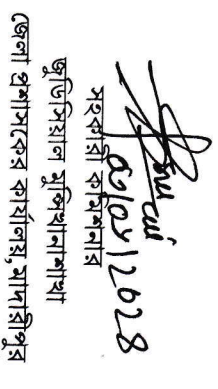 সহকারী কমিশনার
জুডিসিয়াল মুন্সিখানা শাখা
জেলা প্রশাসকের কার্যালয়, মাদারীপুর